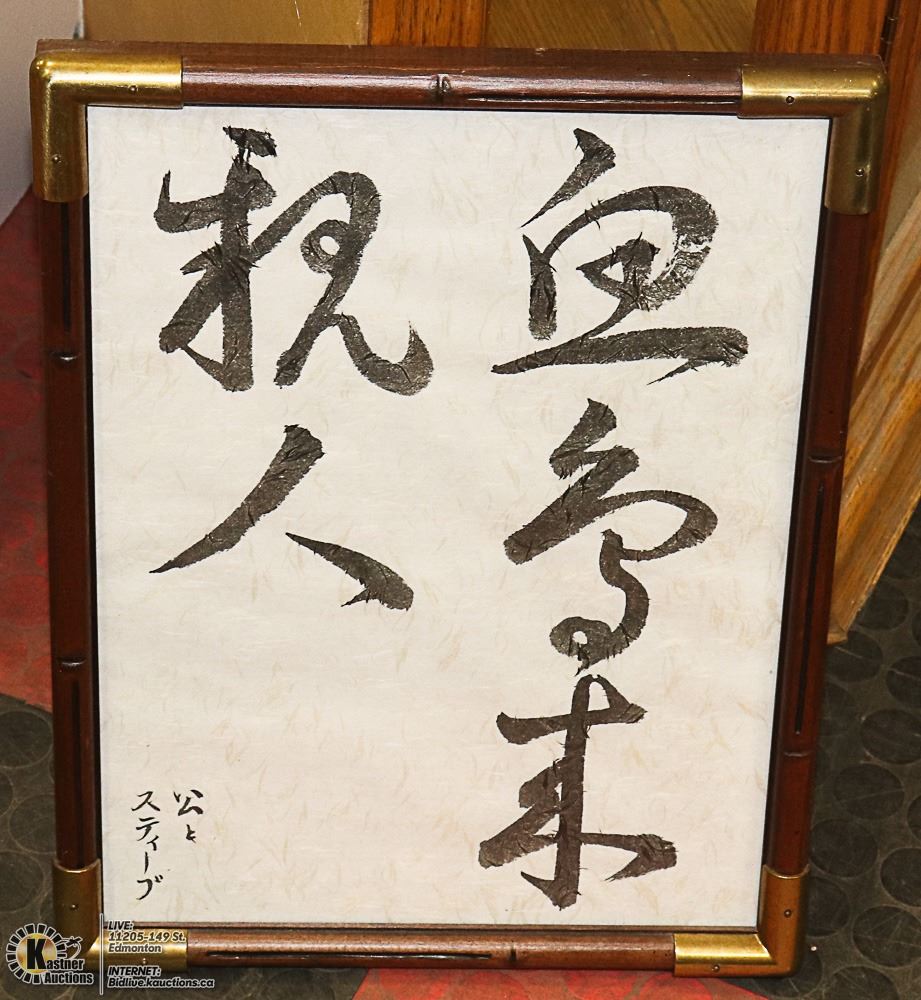 魚鳥来
親人
公と
スティーブ
Kastner
Auctions
LIVE:
11205-149 St.
Edmonton
INTERNET:
Bidlive.kauctions.ca